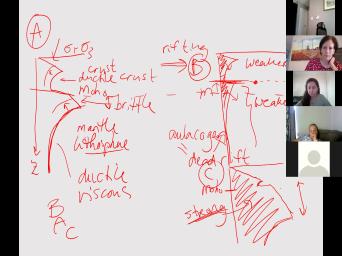 A
σ1-σ3
crust
ductile crust
moho
brittle
mantle
lithosphere
ductile
viscous
z
B
A
C
rifting
B
weaker
weaker
aulacogen
dead
rift
C
moho
strong